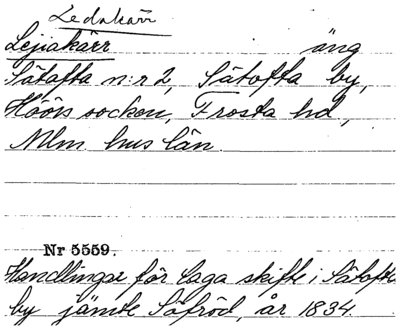 Ledakärr
Lejiakärr äng
Sätofta n:r 2, Sätofta by,
Höörs socken, Frosta hd,
Mlm. hus län.
Nr 5559.
Handlingar för laga skifte i Sätofta
by jämte Säfröd, år 1834.